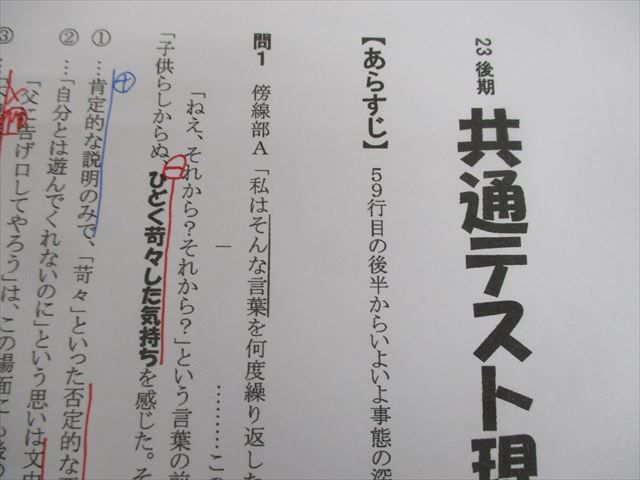 23後期
共通テスト現
【あらすじ】 59行目の後半からいよいよ事態の深
問1 傍線部A「私はそんな言葉を何度繰り返した
………この
「ねえ、それから?それから?」という言葉の前
「子供らしからぬ、ひどく苛々した気持ちを感じた。そ
①…肯定的な説明のみで、「苛々」といった否定的な
②…「自分とは遊んでくれないのに」という思いは文中
「父に告げ口してやろう」は、この場面にも後の
③…